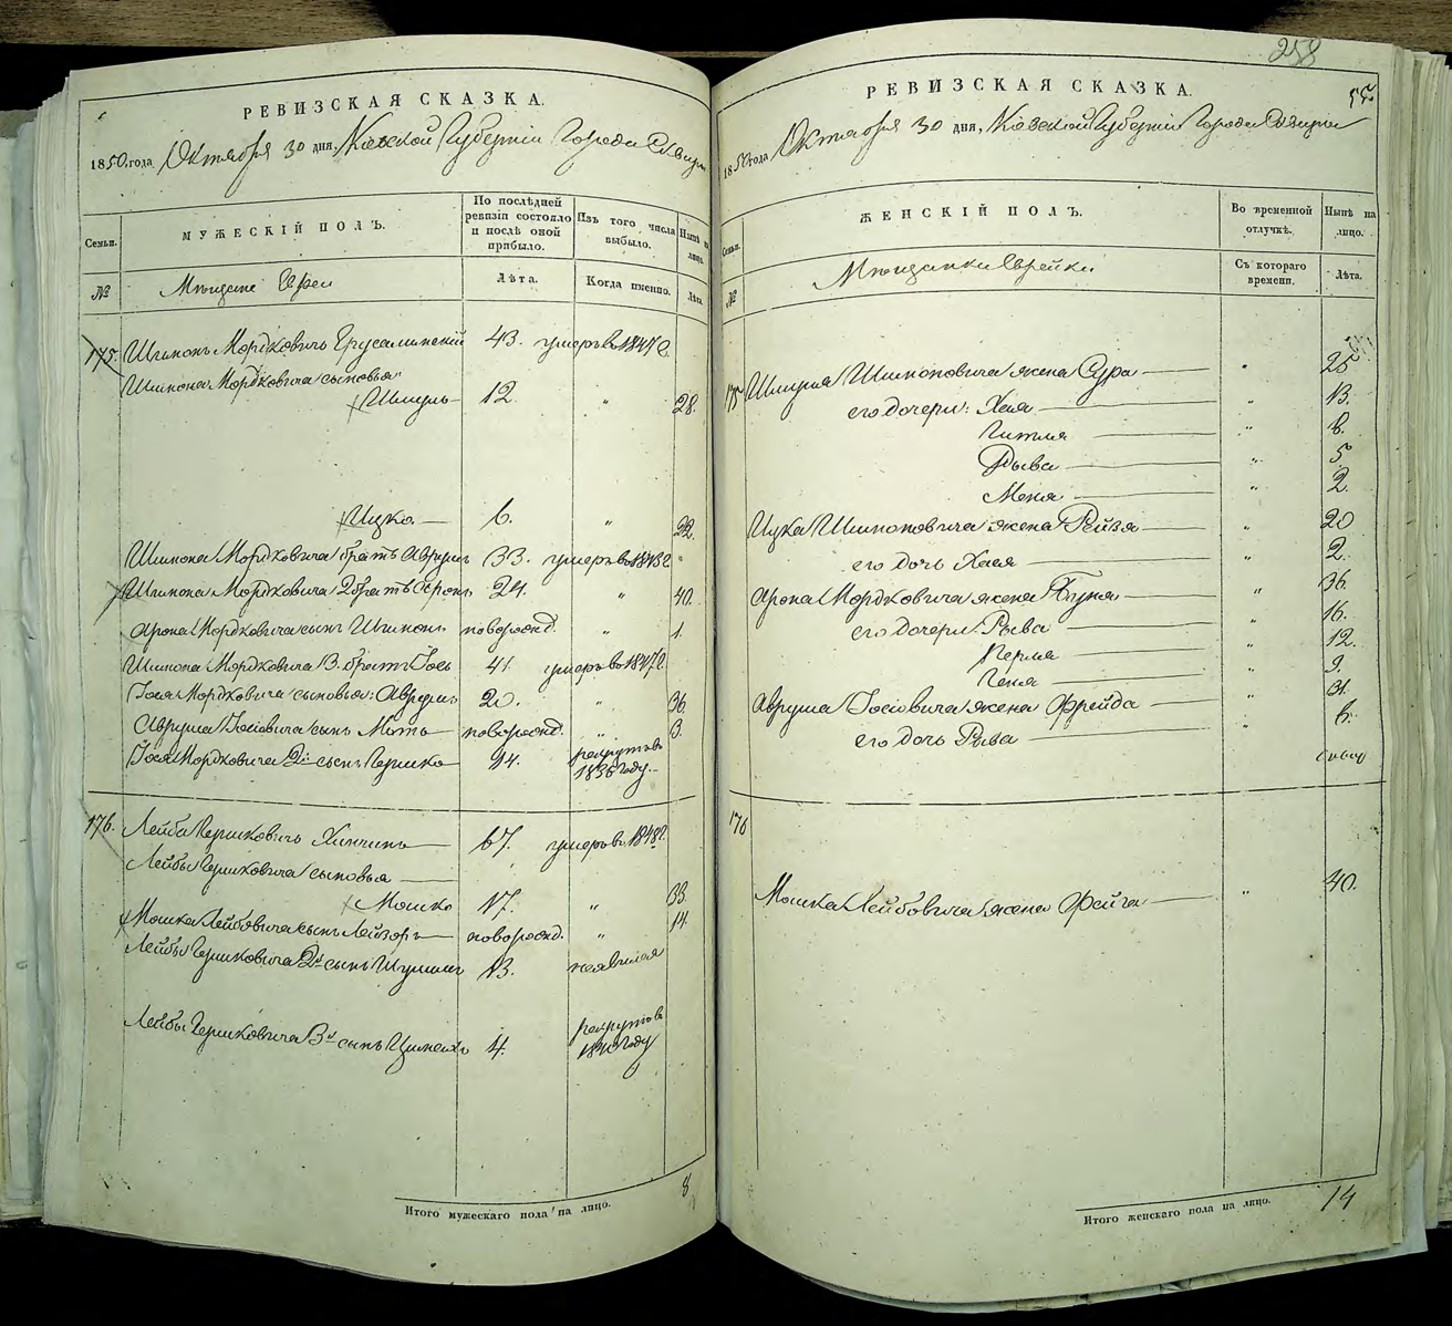 РЕВИЗСКАЯ СКАЗКА.
1850 года Октября 30 дня, Кіевской Губерніи Города Сквиры
Семьи.
МУЖЕСКІЙ ПОЛЪ.
По послѣдней ревизіи состояло и послѣ оной прибыло.
Изъ того числа выбыло.
Нынѣ на лицо.
№
Мѣщане Евреи
Лѣта.
Когда именно.
Лѣта.
175. Шимонъ Мордковичъ Ерусалимскій 43. умеръ въ 1847 г.
Шимона Мордковича сыновья
Шмуль 12. " 28.
Ицко 6. " 22.
Шимона Мордковича братъ Аврумъ 33. умеръ въ 1843 г "
Шимона Мордковича 2 братъ Аронъ 24. " 40.
Арона Мордковича сынъ Шимонъ новорожд. " 1.
Шимона Мордковича 3. братъ Іось 41. умеръ въ 1847 г.
Іося Мордковича сыновья: Аврумъ 20. " 36.
Аврума Іосіовича сынъ Моть новорожд. " 3.
Іося Мордковича 2й сынъ Гершко 14. рекрутовъ
1836 году.
176. Лейба Гершковичъ Хинчинъ 67. умеръ въ 1848 г.
Лейбы Гершковича сыновья
Мошко 17. " 33.
Мошка Лейбовича сынъ Лейзоръ новорожд. " 14.
Лейбы Гершковича 2й сынъ 13. неявился
Лейбы Гершковича 3й сынъ 4. рекрутовъ
1840 году
Итого мужескаго пола на лицо. 8
258
РЕВИЗСКАЯ СКАЗКА.
55.
1850 года Октября 30 дня, Кіевской Губерніи Города Сквиры
Семьи.
ЖЕНСКІЙ ПОЛЪ.
Во временной отлучкѣ.
Нынѣ на лицо.
№
Мѣщанки Еврейки
Съ котораго времени.
Лѣта.
175 Шмуля Шимоновича жена Сура " 25
его дочери: Хая " 13.
Гитля " 6.
Рыва " 5
Меня " 2.
Ицка Шимоновича жена Рейзя " 20
его дочь Хая " 2.
Арона Мордковича жена Буня " 36.
его дочери: Рыва " 16.
Перля " 12.
Геня " 9.
Аврума Іосіовича жена Фрейда " 31.
его дочь Рыва " 6.
176
Мошка Лейбовича жена Фейга " 40.
Итого женскаго пола на лицо. 14